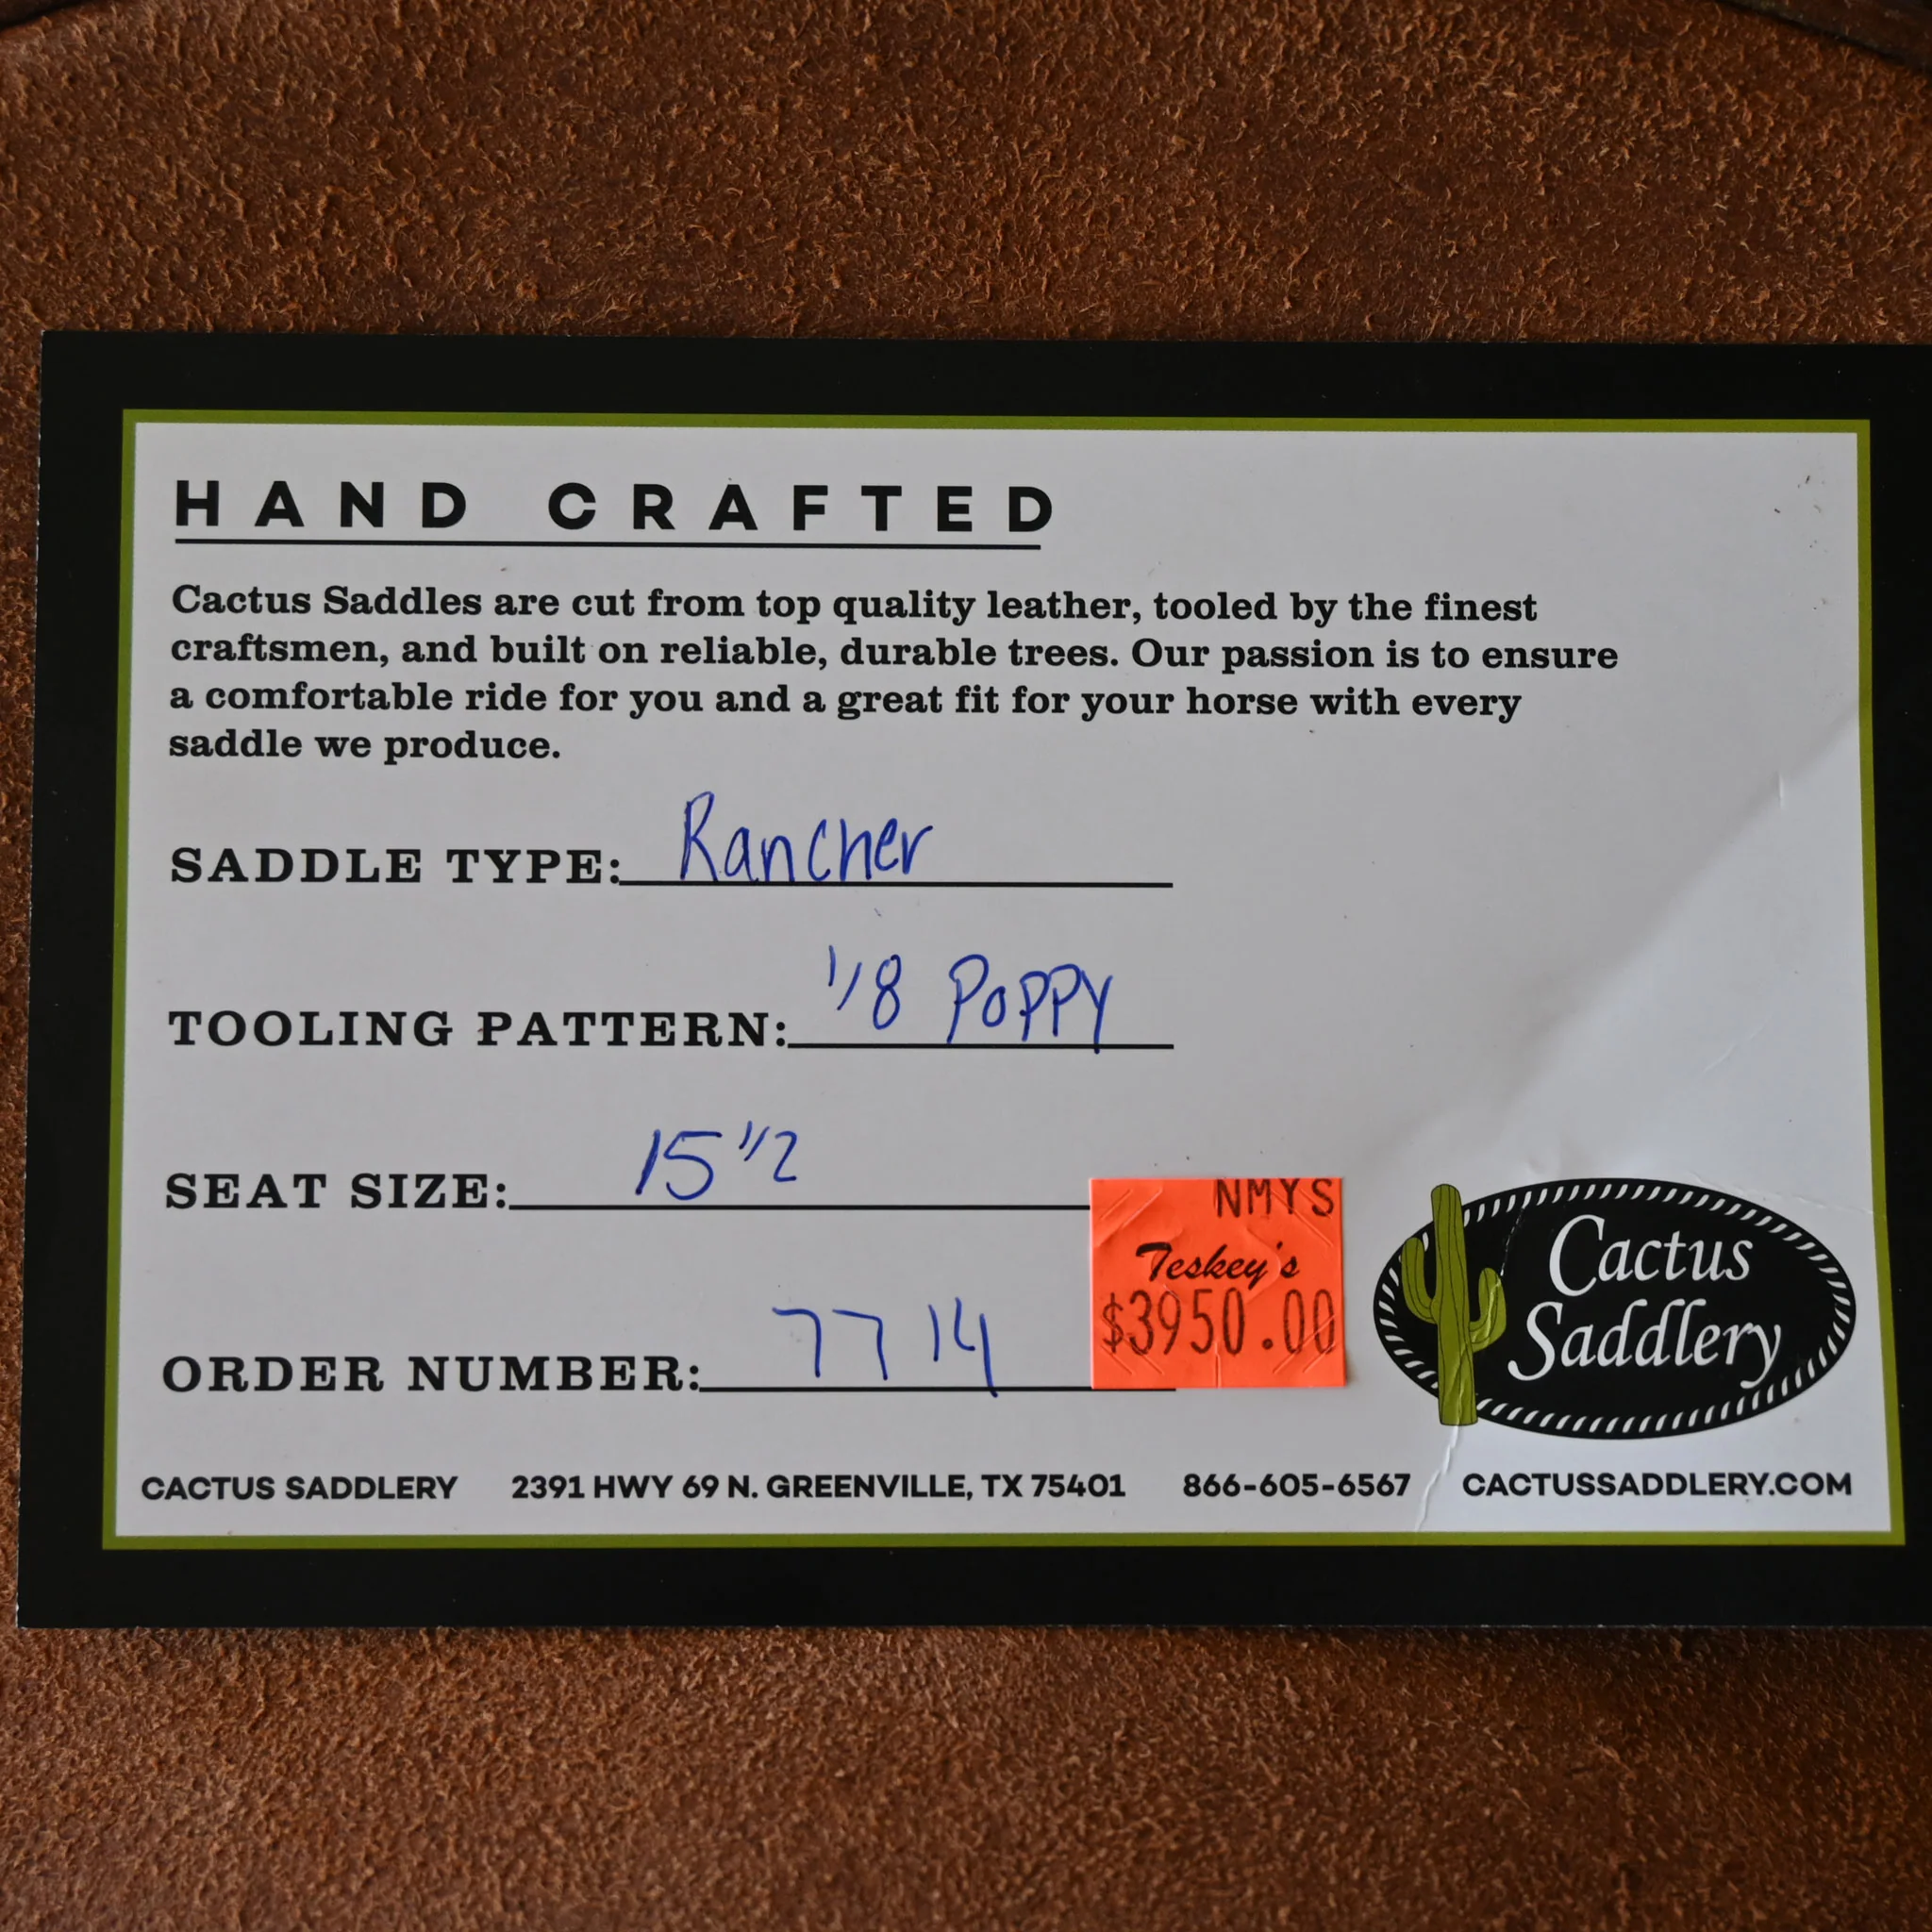 HAND CRAFTED
Cactus Saddles are cut from top quality leather, tooled by the finest
craftsmen, and built on reliable, durable trees. Our passion is to ensure
a comfortable ride for you and a great fit for your horse with every
saddle we produce.
SADDLE TYPE: Rancher
TOOLING PATTERN: 1/8 POPPY
SEAT SIZE: 15 1/2
ORDER NUMBER: 7714
NMYS
Teskey's
$3950.00
Cactus
Saddlery
CACTUS SADDLERY 2391 HWY 69 N. GREENVILLE, TX 75401 866-605-6567 CACTUSSADDLERY.COM